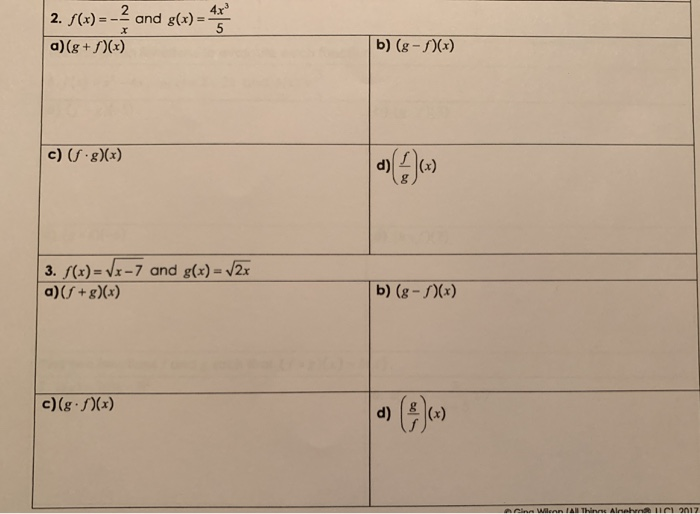 2. f(x) = -2/x and g(x) = 4x³/5
a) (g + f)(x)
b) (g - f)(x)
c) (f · g)(x)
d) (f/g)(x)
3. f(x) = √(x-7) and g(x) = √(2x)
a) (f + g)(x)
b) (g - f)(x)
c) (g · f)(x)
d) (g/f)(x)
© Gina Wilson (All Things Algebra®, LLC), 2017